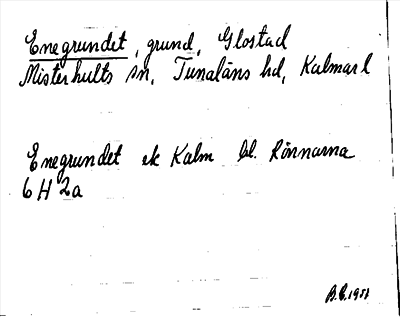 Enegrundet, grund, Glostad
Misterhults sn, Tunaläns hd, Kalmar l
Enegrundet ek Kalm bl. Rönnarna
6 H 2a